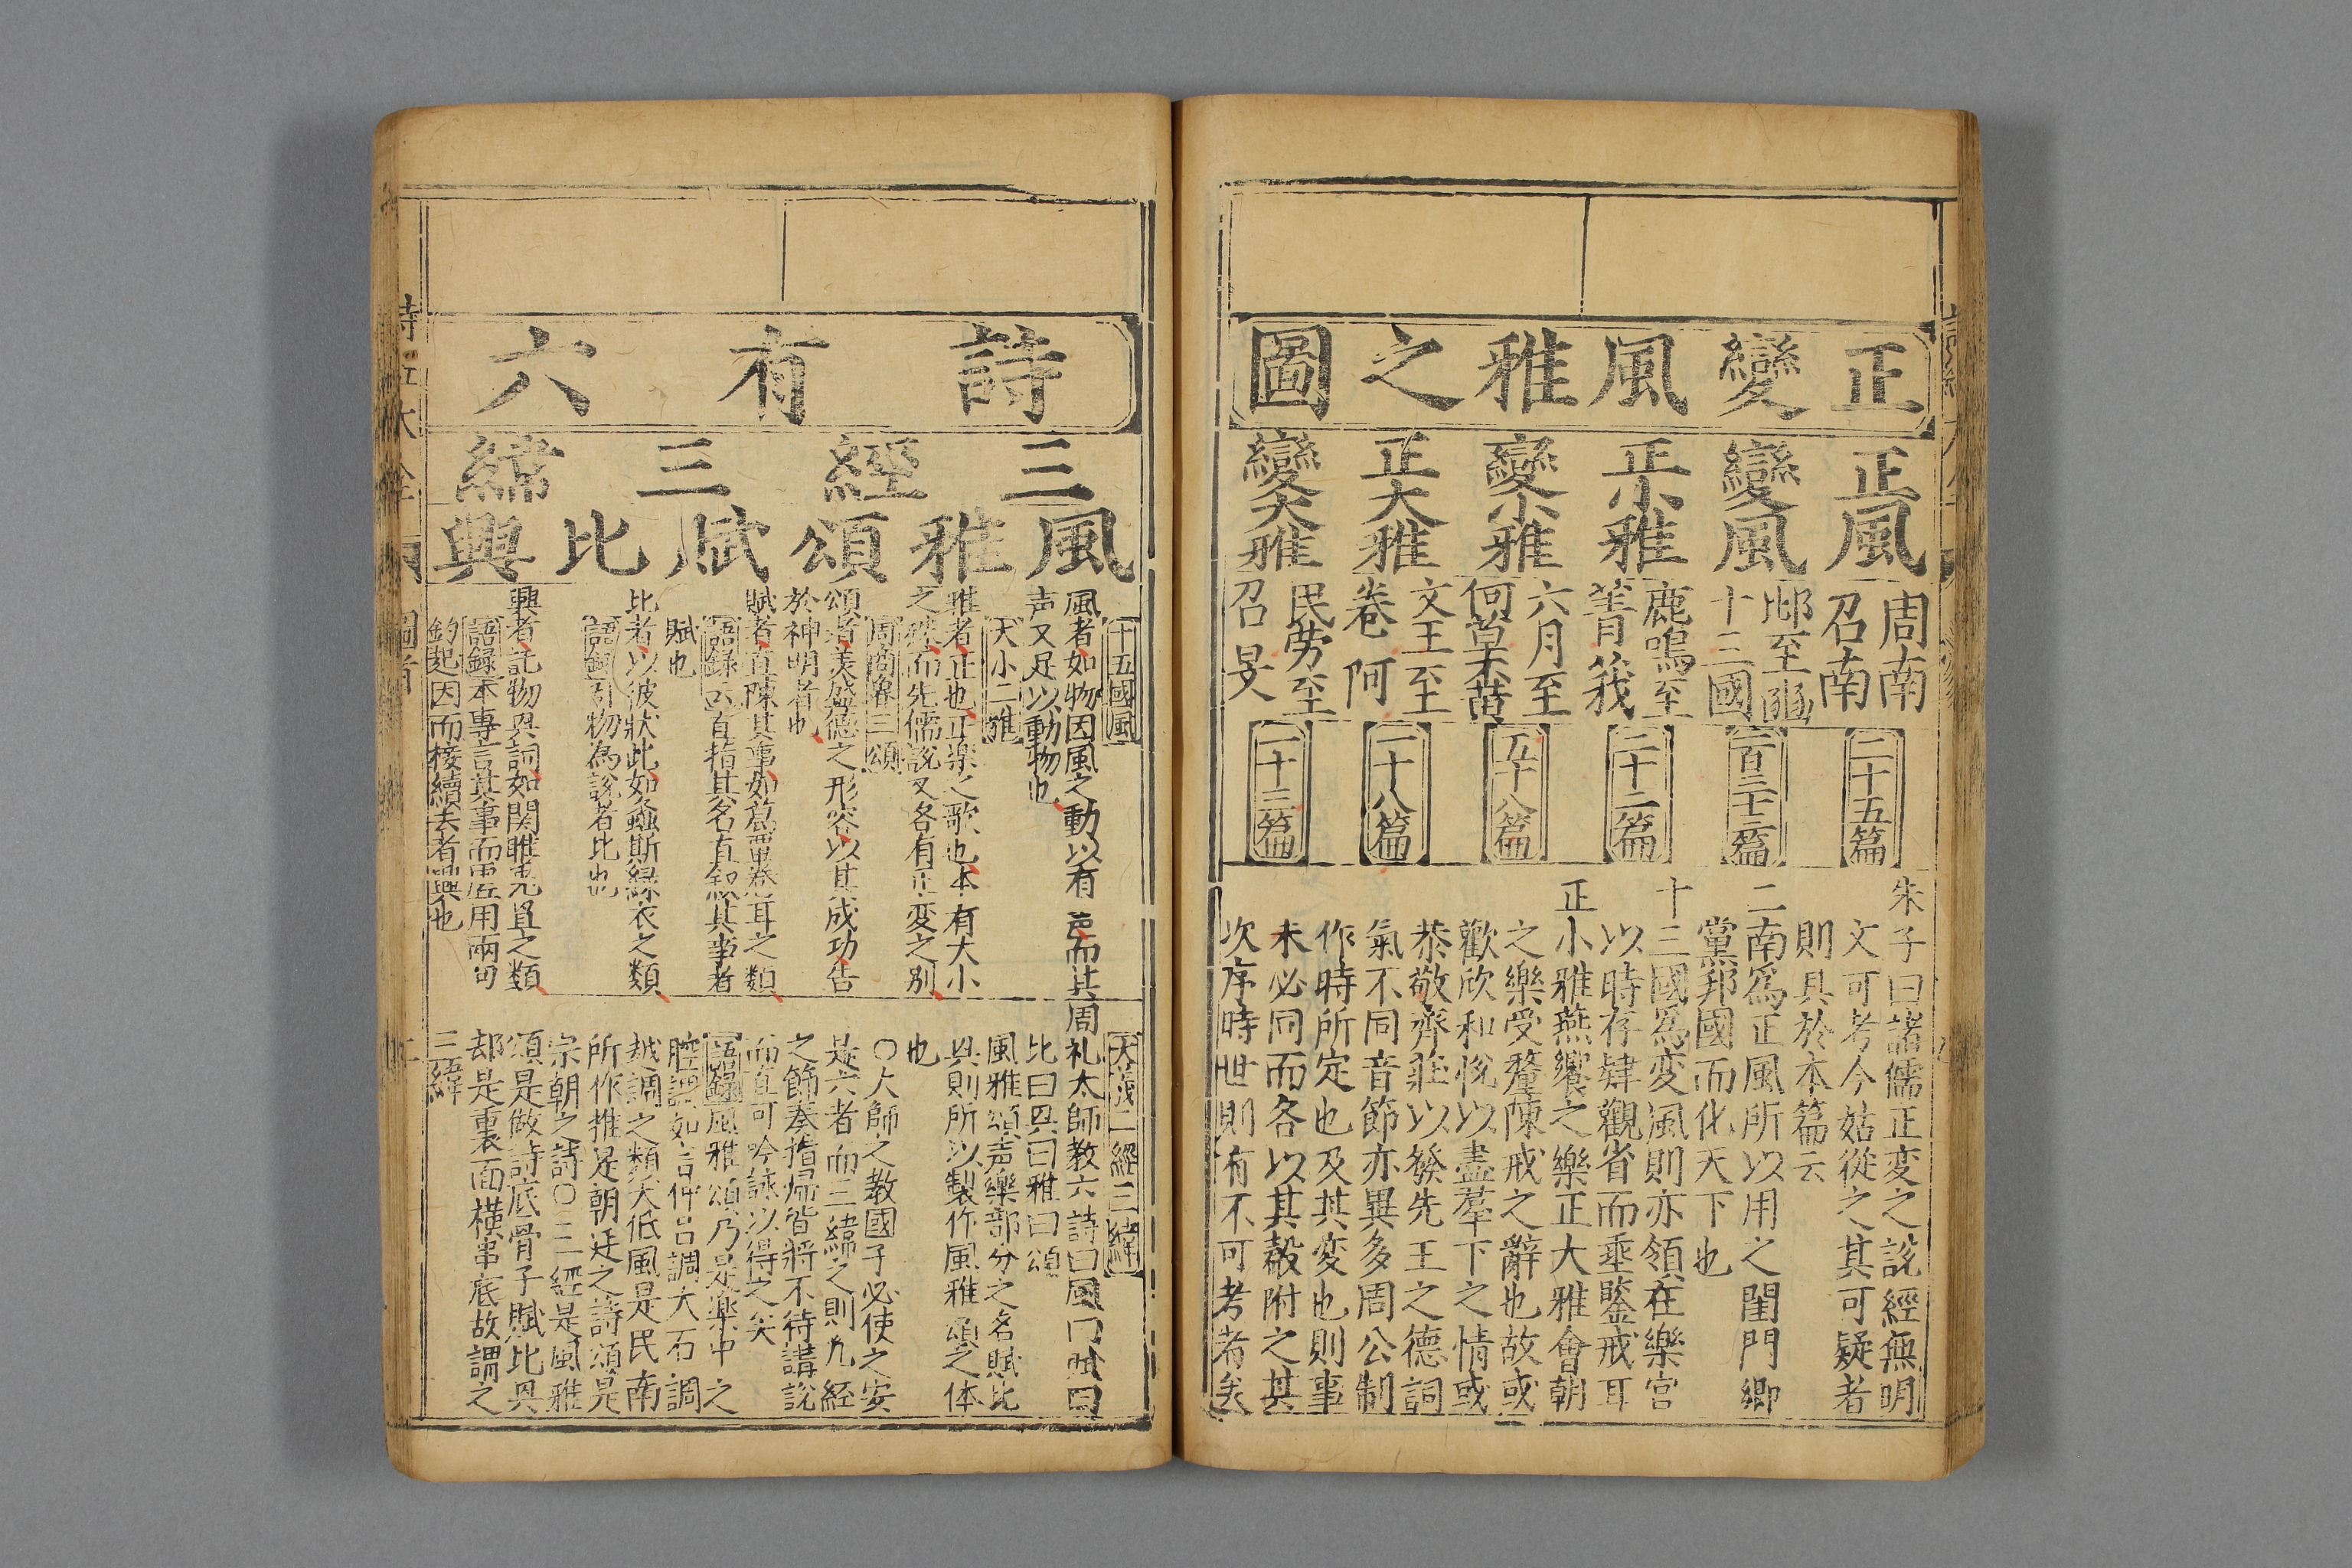 正變風雅之圖
正風
變風
正小雅
變小雅
正大雅
變大雅
周南
召南
邶至豳
十三國
鹿鳴至
菁莪
六月至
何草不黄
文王至
卷阿
民勞至
召旻
二十五篇
二十二篇
五十八篇
一十八篇
一十三篇
朱子曰諸儒正変之說經無明
文可考今姑從之其可疑者
則具於本篇云
二南爲正風所以用之閨門鄉
黨邦國而化天下也
十三國爲変風則亦領在樂宮
以時存肄觀省而垂鑒戒耳
正小雅燕饗之樂正大雅會朝
之樂受釐陳戒之辭也故或
歡欣和悅以盡羣下之情或
恭敬齊莊以發先王之德詞
氣不同音節亦異多周公制
作時所定也及其変也則事
未必同而各以其聲附之其
次序時世則有不可考者矣
詩有六
三經三緯
風雅頌賦比興
十五國風
風者如物因風之動以有声而其
声又足以動物也
大小二雅
雅者正也正楽之歌也本有大小
之殊而先儒説又各有正変之別
周商魯三頌
頌者美盛德之形容以其成功告
於神明者也
賦者直陳其事如葛覃卷耳之類
語録云直指其名直敘其事者
賦也
比者以彼狀此如螽斯緑衣之類
語録引物為說者比也
興者託物興詞如関雎兎罝之類
語録本專言其事而虚用兩句
釣起因而接續去者興也
三經三緯
周礼太師教六詩曰風曰賦曰
比曰興曰雅曰頌
風雅頌声樂部分之名賦比
興則所以製作風雅頌之体
也
〇大師之教國子必使之安
是六者而三緯之則凡経
之節奏指帰皆將不待講說
而直可吟詠以得之矣
語録風雅頌乃是楽中之
腔調如言仲呂調大石調
越調之類大低風是民南
所作雅是朝廷之詩頌是
宗朝之詩〇三經是風雅
頌是做詩底骨子賦比興
却是裏面橫串底故謂之
三緯